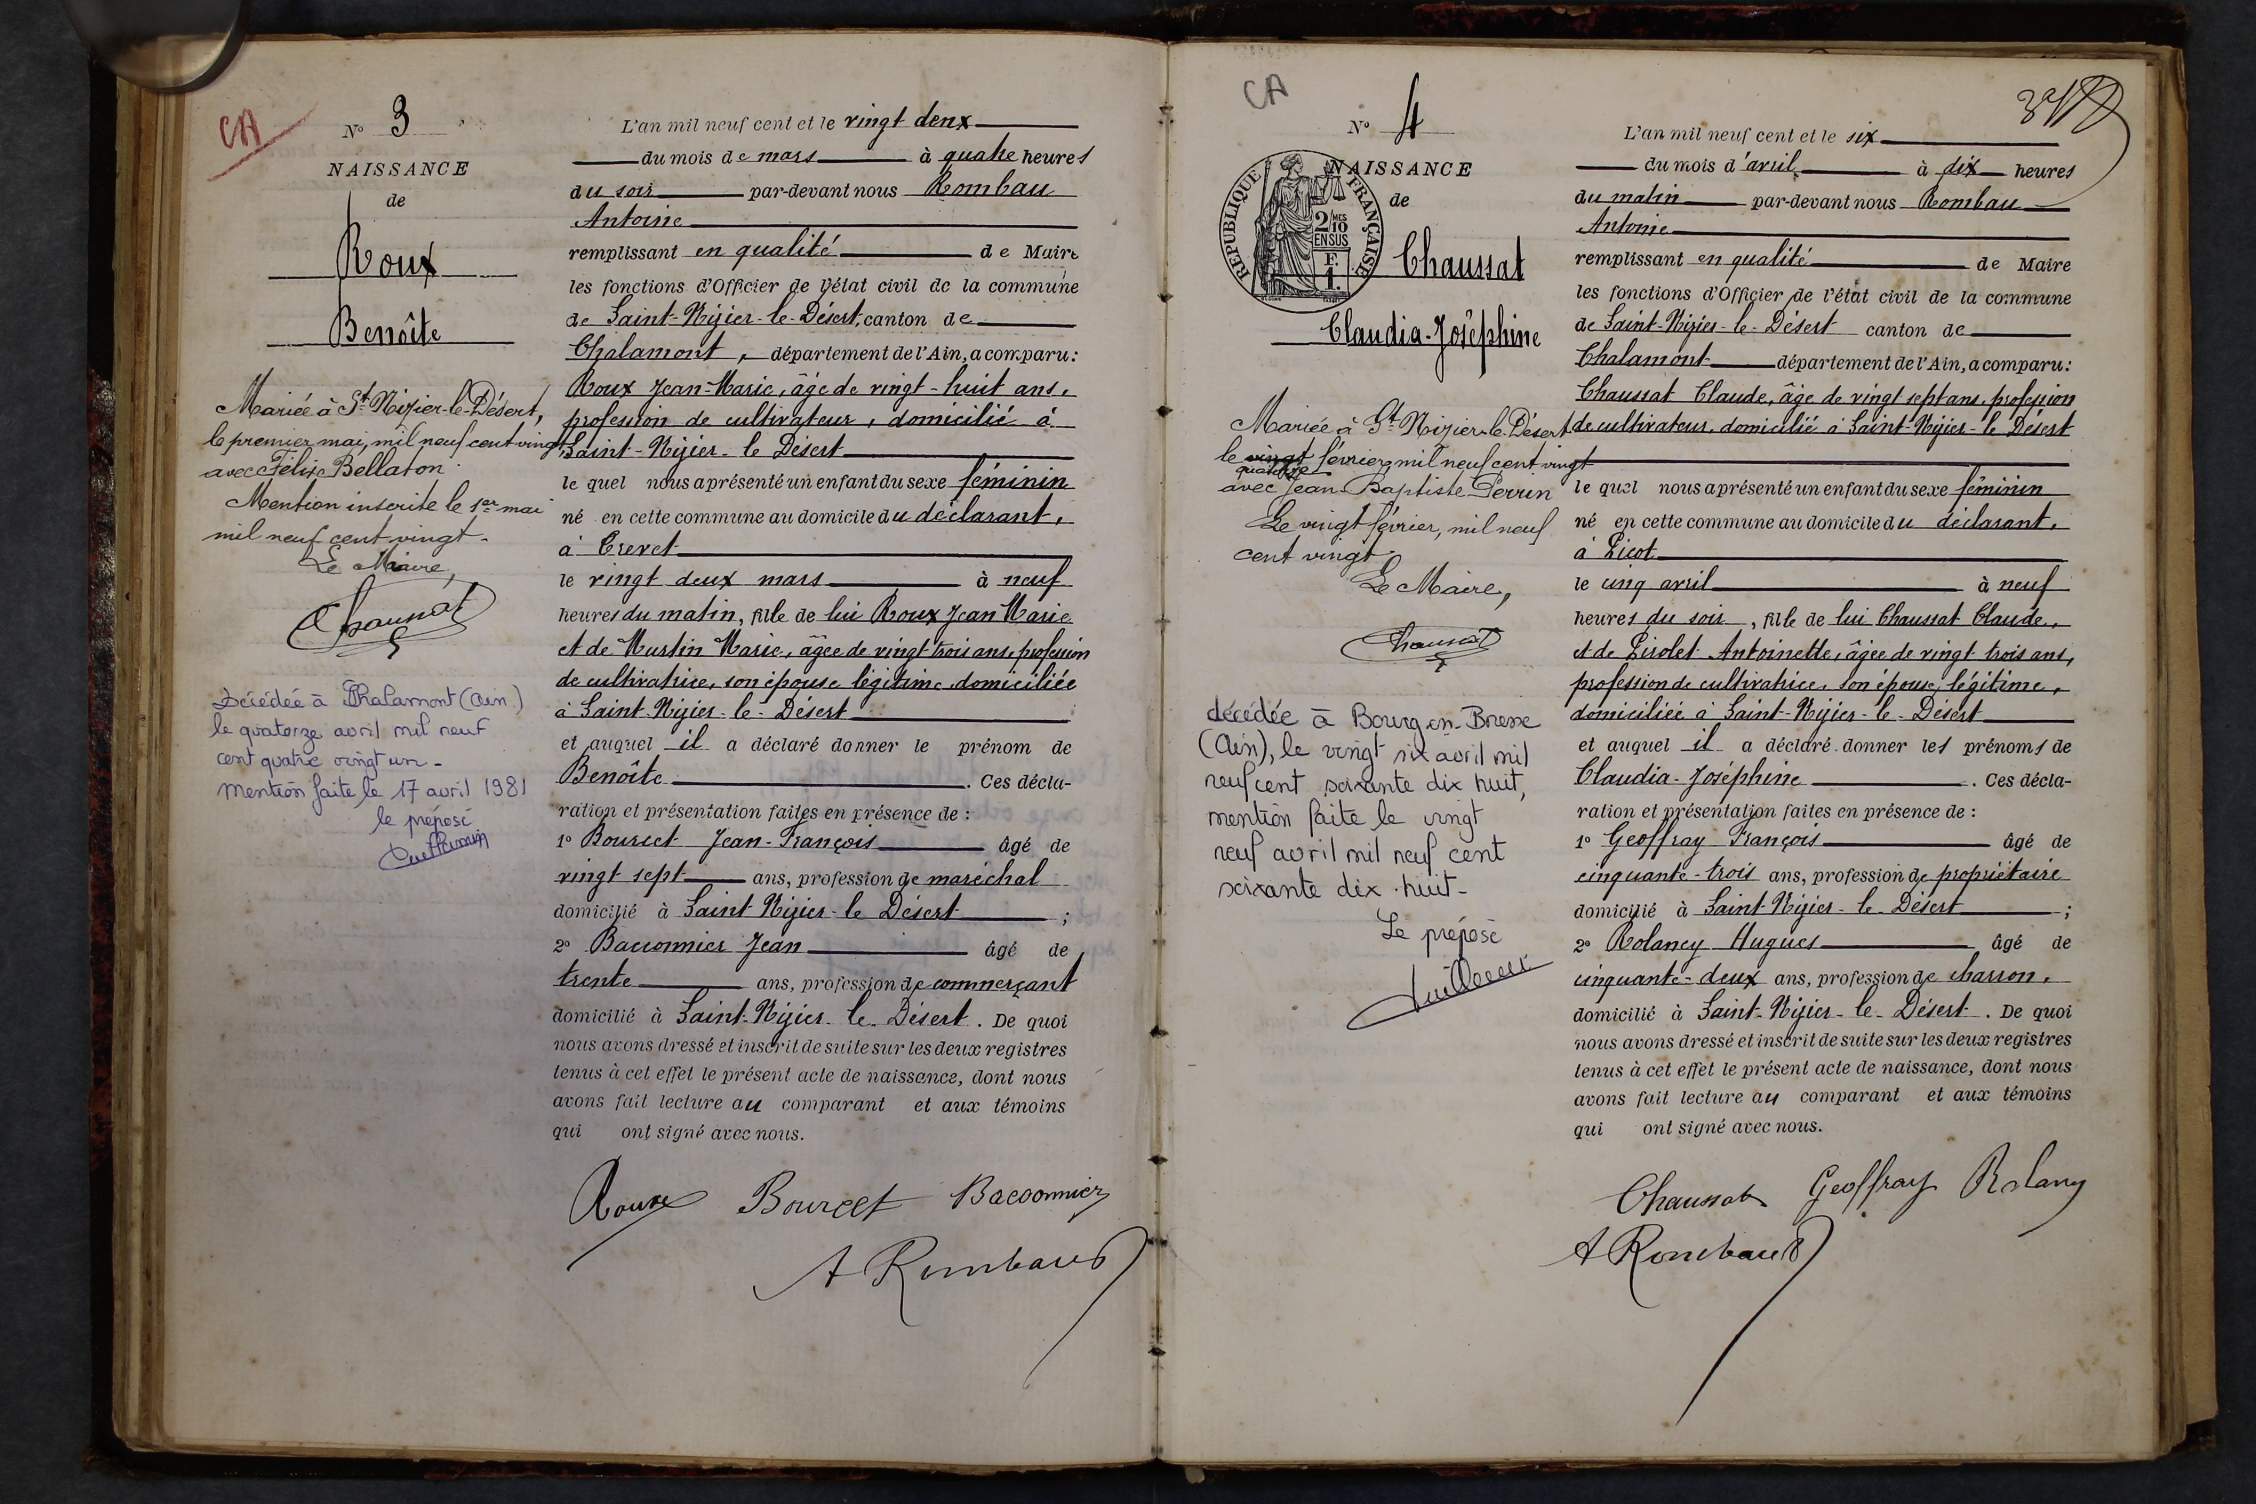 CA
Nº 3
NAISSANCE
de
Roux
Benoîte
Mariée à St Nizier-le-Désert,
le premier mai, mil neuf cent vingt,
avec Félix Bellaton.
Mention inscrite le 1er mai
mil neuf cent vingt.
Le Maire,
Chaussat
Décédée à Chalamont (Ain)
le quatorze avril mil neuf
cent quatre vingt un.
mention faite le 17 avril 1981
le préposé
L'an mil neuf cent et le vingt deux
du mois de mars à quatre heures
du soir par-devant nous Rombau
Antoine
remplissant en qualité de Maire
les fonctions d'Officier de l'état civil de la commune
de Saint-Nizier-le-Désert, canton de
Chalamont, département de l'Ain, a comparu:
Roux Jean-Marie, âgé de vingt-huit ans,
profession de cultivateur, domicilié à
Saint-Nizier-le Désert
le quel nous a présenté un enfant du sexe féminin
né en cette commune au domicile du déclarant,
à Crevet
le vingt deux mars à neuf
heures du matin, fille de lui Roux Jean Marie
et de Murtin Marie, âgée de vingt trois ans, profession
de cultivatrice, son épouse légitime, domiciliée
à Saint-Nizier-le-Désert
et auquel il a déclaré donner le prénom de
Benoîte. Ces décla-
ration et présentation faites en présence de :
1º Bourcet Jean-François âgé de
vingt sept ans, profession de maréchal
domicilié à Saint Nizier-le Désert ;
2º Bacconnier Jean âgé de
trente ans, profession de commerçant
domicilié à Saint-Nizier-le-Désert. De quoi
nous avons dressé et inscrit de suite sur les deux registres
tenus à cet effet le présent acte de naissance, dont nous
avons fait lecture au comparant et aux témoins
qui ont signé avec nous.
Roux Bourcet Bacconnier
A Rombaud
CA
Nº 4
NAISSANCE
de
RÉPUBLIQUE FRANÇAISE
2/10 MES
EN SUS
F.
1.
Chaussat
Claudia-Joséphine
Mariée à St Nizier-le-Désert
le vingt février, mil neuf cent vingt
quatorze
avec Jean-Baptiste Perrin
Le vingt février, mil neuf
cent vingt.
Le Maire,
Chaussat
décédée à Bourg-en-Bresse
(Ain), le vingt six avril mil
neuf cent soixante dix huit,
mention faite le vingt
neuf avril mil neuf cent
soixante dix-huit-
Le préposé
L'an mil neuf cent et le six
du mois d'avril à dix heures
du matin par-devant nous Rombau
Antoine
remplissant en qualité de Maire
les fonctions d'Officier de l'état civil de la commune
de Saint-Nizier-le-Désert canton de
Chalamont département de l'Ain, a comparu:
Chaussat Claude, âgé de vingt sept ans, profession
de cultivateur, domicilié à Saint-Nizier-le Désert
le quel nous a présenté un enfant du sexe féminin
né en cette commune au domicile du déclarant,
à Picot
le cinq avril à neuf
heures du soir, fille de lui Chaussat Claude,
et de Pirolet Antoinette, âgée de vingt trois ans,
profession de cultivatrice, son épouse légitime,
domiciliée à Saint-Nizier-le-Désert
et auquel il a déclaré donner les prénoms de
Claudia-Joséphine. Ces décla-
ration et présentation faites en présence de :
1º Geoffray François âgé de
cinquante-trois ans, profession de propriétaire
domicilié à Saint-Nizier-le-Désert ;
2º Rolancy Hugues âgé de
cinquante-deux ans, profession de charron,
domicilié à Saint-Nizier-le-Désert. De quoi
nous avons dressé et inscrit de suite sur les deux registres
tenus à cet effet le présent acte de naissance, dont nous
avons fait lecture au comparant et aux témoins
qui ont signé avec nous.
Chaussat Geoffray Rolancy
A Rombaud